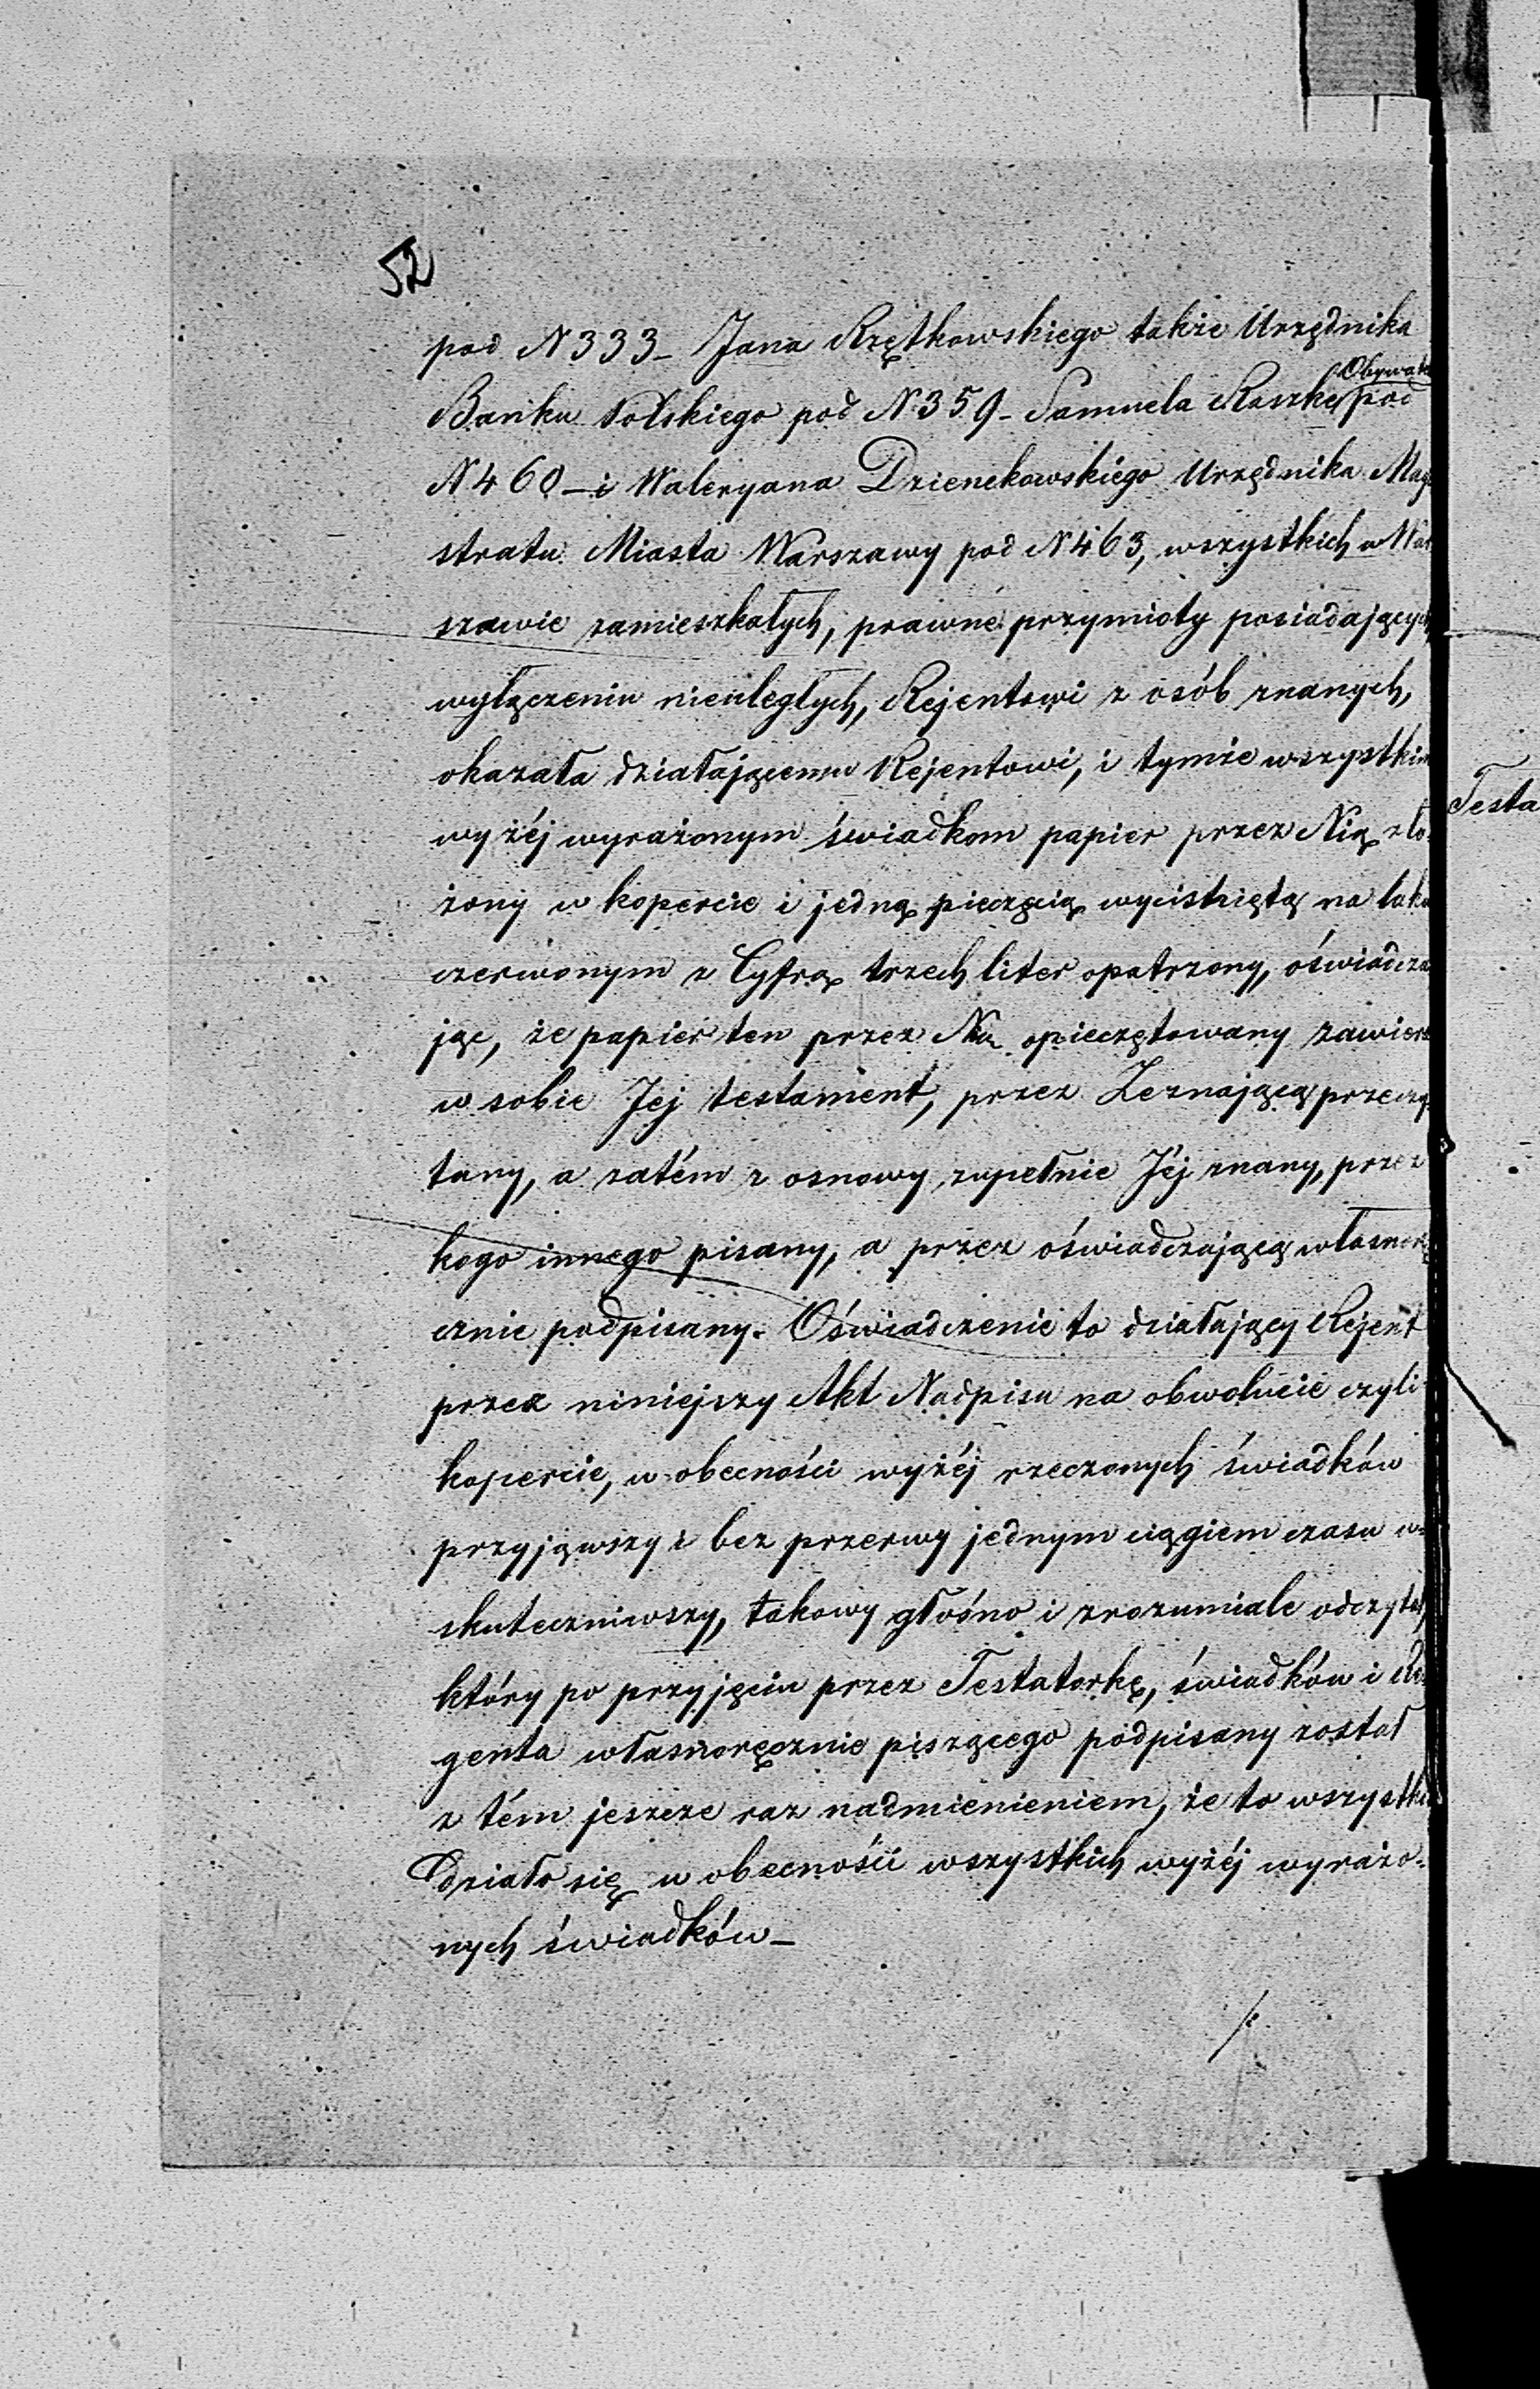 52
pod N 333 – Jana Rzętkowskiego także Urzędnika
Obywat
Banku Polskiego pod N. 359 – Samuela Raszke pod
N 460 – i Waleryana Dzienekowskiego Urzędnika Mag
stratu Miasta Warszawy pod N 463, wszystkich w War
szawie zamieszkałych, prawne przymioty posiadających
wyłączeniu nieuległych, Rejentowi z osób znanych,
okazała działającemu Rejentowi, i tymże wszystkim
wyżéj wyrażonym świadkom papier przez Nią zło-
żony w kopercie i jedną pieczęcią wyciśniętą na laku
czerwonym z Cyfrą trzech liter opatrzony, oświadcza
jąc, że papier ten przez Nią opieczętowany zawiera
w sobie Jej testament, przez Zeznającą przeczy
tany, a zatém z osnowy zupełnie Jéj znany, przez
kogo innego pisany, a przez oświadczającą własnorę
cznie podpisany. Oświadczenie to działający Rejent
przez niniejszy Akt Nadpisu na obwolucie czyli
kopercie, w obecności wyżéj rzeczonych świadków
przyjąwszy i bez przerwy jednym ciągiem czasu u-
skuteczniwszy, takowy głośno i zrozumiale odczytał,
który po przyjęciu przez Testatorkę, świadków i Re
genta własnoręcznie piszącego podpisany został
z tém jeszcze raz nadmienieniem, że to wszystko
Działo się w obecności wszystkich wyżéj wyrażo-
nych świadków –
Testa